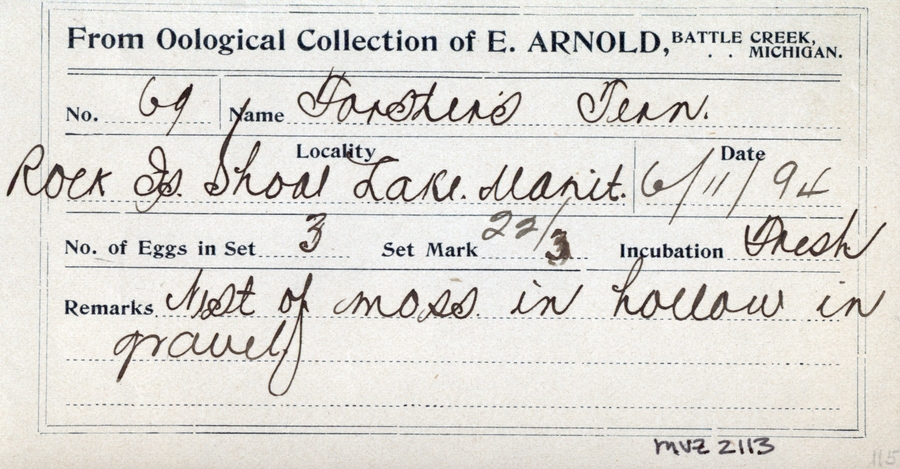 From Oological Collection of E. ARNOLD, BATTLE CREEK, MICHIGAN.
No. 69 Name Forster's Tern.
Locality Date
Rock Is. Shoal Lake. Manit. 6/11/94
No. of Eggs in Set 3 Set Mark 22/3 Incubation Fresh
Remarks Nest of moss in hollow in
gravel
MVZ 2113
115